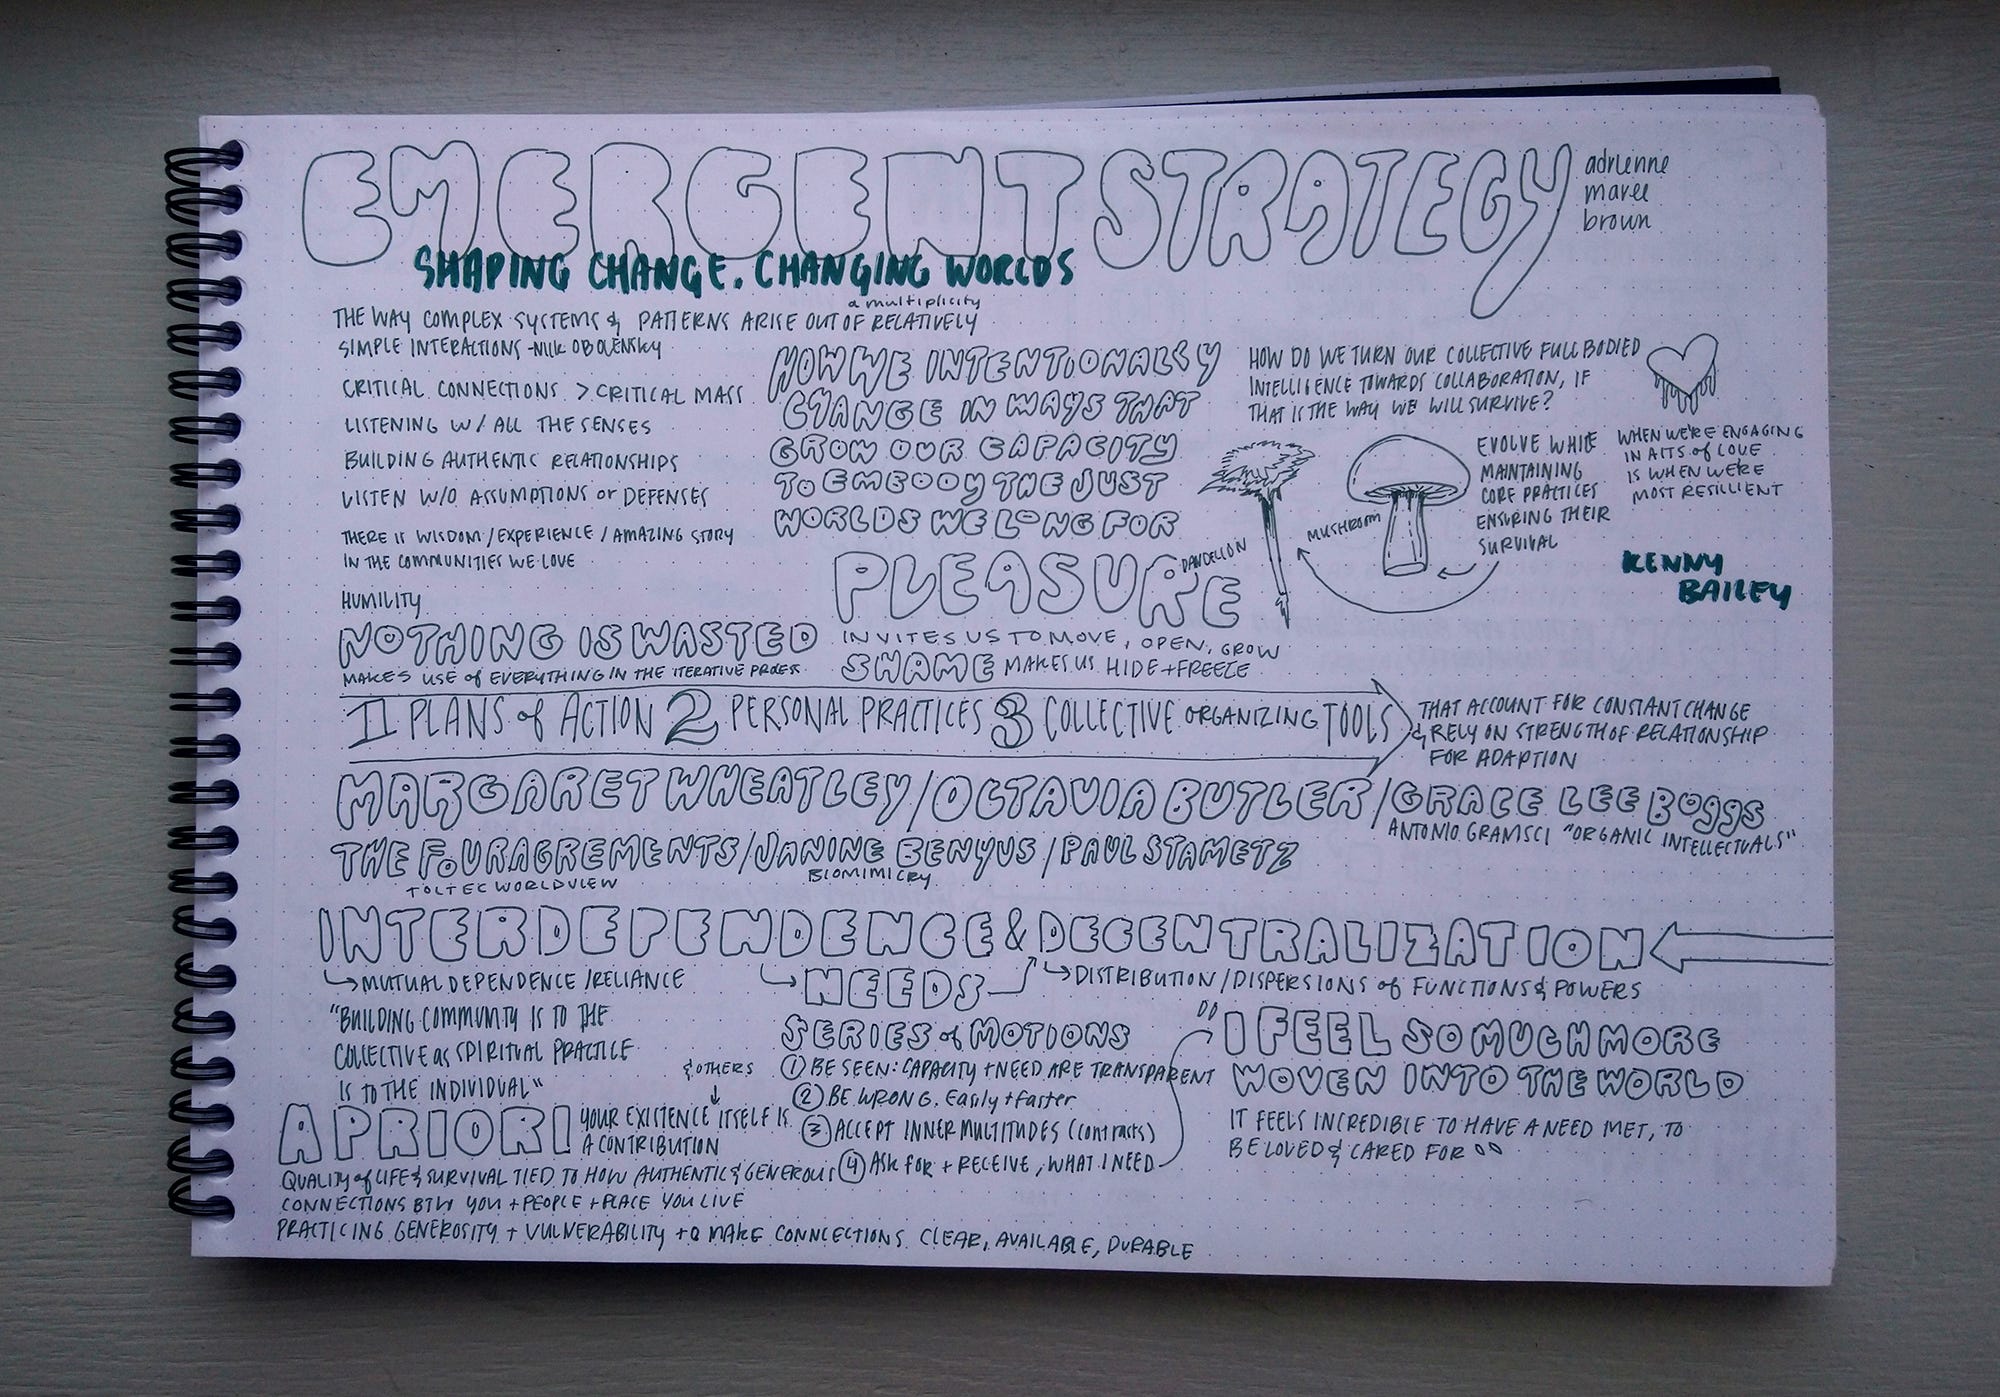 EMERGENT STRATEGY
adrienne
maree
brown
SHAPING CHANGE. CHANGING WORLDS
a multiplicity
THE WAY COMPLEX SYSTEMS & PATTERNS ARISE OUT OF RELATIVELY
SIMPLE INTERACTIONS -NICK OBOLENSKY
CRITICAL CONNECTIONS > CRITICAL MASS
LISTENING W/ ALL THE SENSES
BUILDING AUTHENTIC RELATIONSHIPS
LISTEN W/O ASSUMPTIONS or DEFENSES
THERE IS WISDOM/EXPERIENCE/AMAZING STORY
IN THE COMMUNITIES WE LOVE
HUMILITY
NOTHING IS WASTED
MAKES USE of EVERYTHING IN THE ITERATIVE PROCESS
HOW WE INTENTIONALLY
CHANGE IN WAYS THAT
GROW OUR CAPACITY
TO EMBODY THE JUST
WORLDS WE LONG FOR
PLEASURE
INVITES US TO MOVE, OPEN, GROW
SHAME MAKES US HIDE + FREEZE
HOW DO WE TURN OUR COLLECTIVE FULL BODIED
INTELLIGENCE TOWARDS COLLABORATION, IF
THAT IS THE WAY WE WILL SURVIVE?
DANDELION
MUSHROOM
EVOLVE WHILE
MAINTAINING
CORE PRACTICES
ENSURING THEIR
SURVIVAL
WHEN WE'RE ENGAGING
IN ACTS of LOVE
IS WHEN WE'RE
MOST RESILLIENT
KENNY
BAILEY
1 PLANS of ACTION 2 PERSONAL PRACTICES 3 COLLECTIVE ORGANIZING TOOLS
THAT ACCOUNT FOR CONSTANT CHANGE
& RELY ON STRENGTH OF RELATIONSHIP
FOR ADAPTION
MARGARET WHEATLEY/OCTAVIA BUTLER/GRACE LEE BOggS
ANTONIO GRAMSCI "ORGANIC INTELLECTUALS"
THE FOUR AGREMENTS/JANINE BENYUS/PAUL STAMETZ
TOLTEC WORLDVIEW
BIOMIMICRY
INTERDEPENDENCE & DECENTRALIZATION
MUTUAL DEPENDENCE/RELIANCE
NEEDS
DISTRIBUTION/DISPERSIONS of FUNCTIONS & POWERS
"BUILDING COMMUNITY IS TO THE
COLLECTIVE as SPIRITUAL PRACTICE
IS TO THE INDIVIDUAL"
SERIES of MOTIONS
1 BE SEEN: CAPACITY + NEED ARE TRANSPARENT
2 BE WRONG. Easily + faster
3 ACCEPT INNER MULTITUDES (contracts)
4 ASK FOR + RECEIVE, WHAT I NEED
"I FEEL SO MUCH MORE
WOVEN INTO THE WORLD
IT FEELS INCREDIBLE TO HAVE A NEED MET, TO
BE LOVED & CARED FOR"
& OTHERS
A PRIORI YOUR EXISTENCE ITSELF IS
A CONTRIBUTION
QUALITY of LIFE & SURVIVAL TIED TO HOW AUTHENTIC & GENEROUS
CONNECTIONS BTW YOU + PEOPLE + PLACE YOU LIVE
PRACTICING GENEROSITY + VULNERABILITY to MAKE CONNECTIONS CLEAR, AVAILABLE, DURABLE